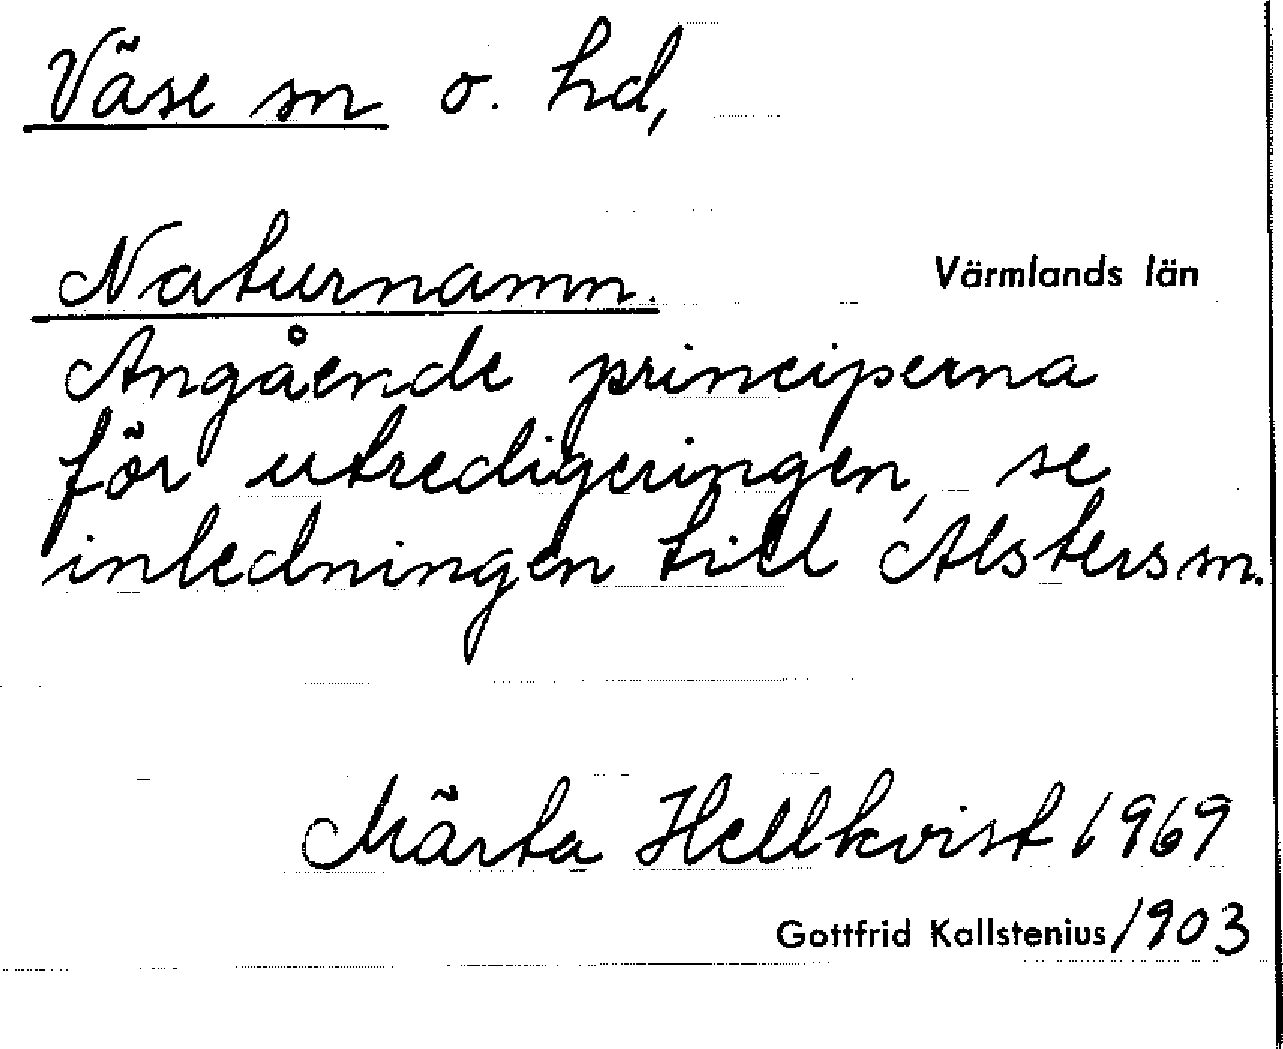 Väse sn o. hd,
Naturnamn.
Värmlands län
Angående principerna
för utredigeringen, se
inledningen till Alsters sn.
Märta Hellkvist 1969
Gottfrid Kallstenius 1903